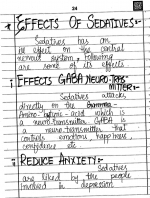 24
EFFECTS OF SEDATIVES:-
Sedatives has an
ill effect on the central
nervous system, following
are some of its effects
i EFFECTS GABA NEURO-TRANS-
MITTERS:-
Sedatives attacks
directly on the Gamma-
Amino-butyric-acid which is
a neuro transmitter. GABA is
a neuro transmitter that
controls emotions, happiness,
confidence etc
ii REDUCE ANXIETY:-
Sedatives
are liked by the people
involved in depression